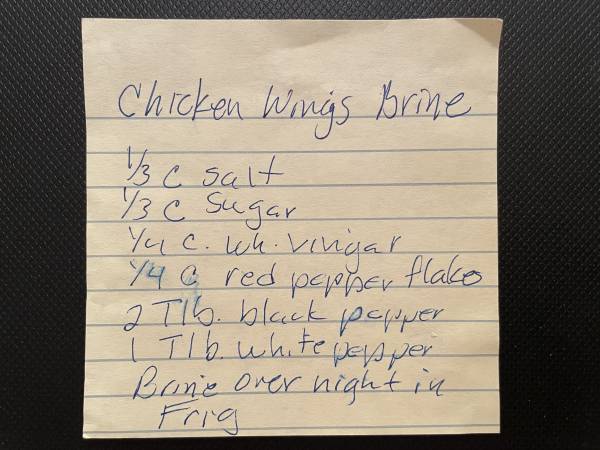 Chicken Wings Brine
1/3 C salt
1/3 C Sugar
1/4 C. wh. vinigar
1/4 C red pepper flakes
2 Tlb. black pepper
1 Tlb. white pepper
Brine over night in
Frig